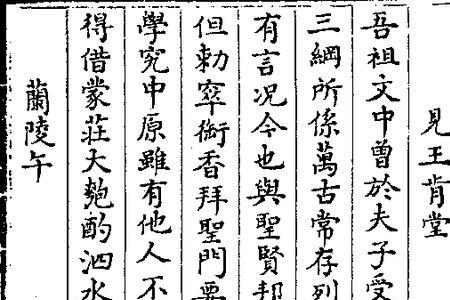 見王肯堂
吾祖文中曽於夫子受
三綱所係萬古常存列
有言况今也與聖賢邦
但勅窣衘香拜聖門要
學究中原雖有他人不
得借蒙莊大匏酌泗水
蘭陵午